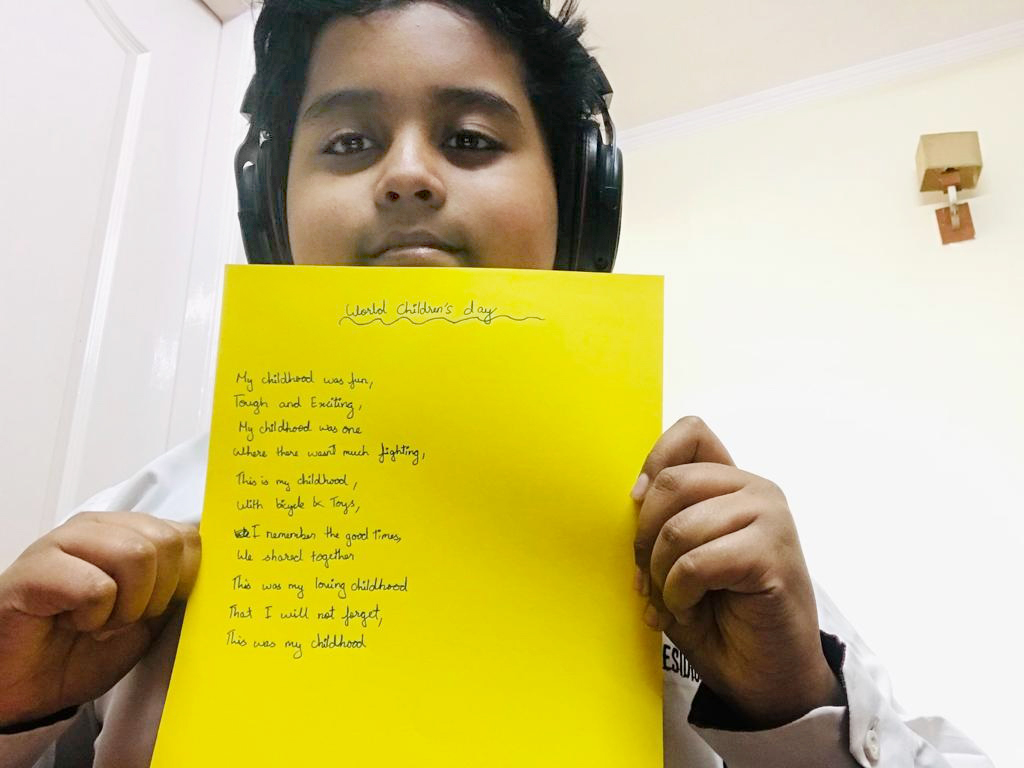 World Children's day
My childhood was fun,
Tough and Exciting,
My childhood was one
Where there wasn't much fighting,
This is my childhood,
With bicycle & Toys,
I remember the good times,
We shared together
This was my loving childhood
That I will not forget,
This was my childhood